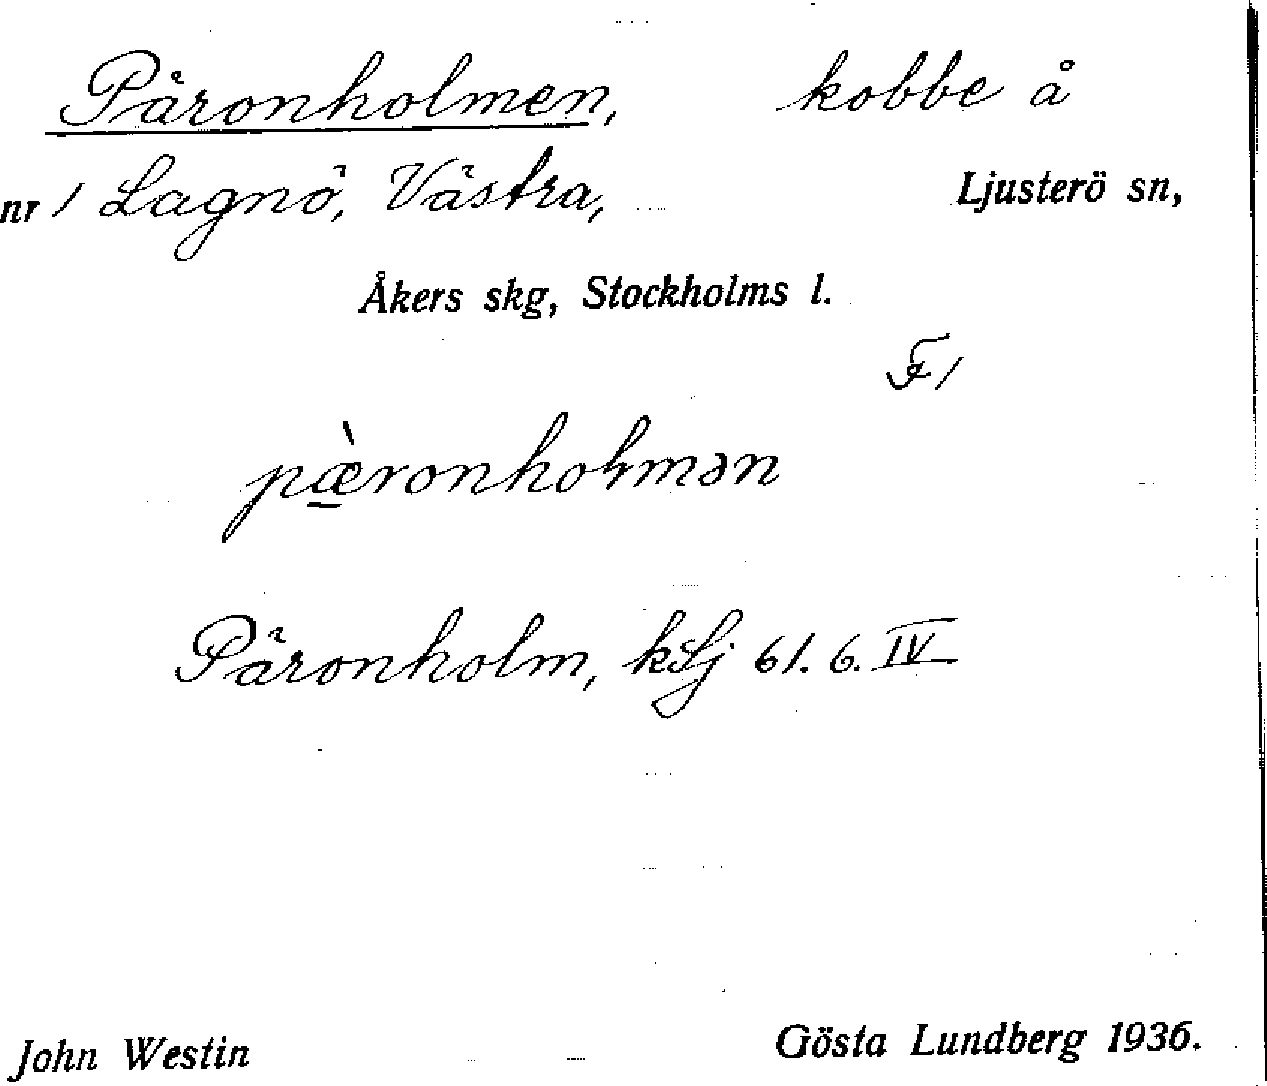 Päronholmen, kobbe å
nr 1 Lagnö, Västra, Ljusterö sn,
Åkers skg, Stockholms l.
F1
pæ̀ronholmən
Päronholm, kLj 61. 6. IV
John Westin Gösta Lundberg 1936.